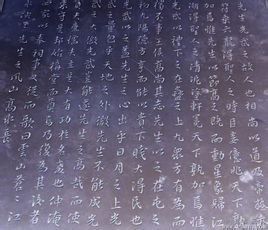 先生光武之故人也相尚以道及帝握赤
符乘六龍得聖人之時臣妾億兆天下孰
加焉惟先生以節高之既而動星象歸江
湖得聖人之清泥塗軒冕天下孰加焉惟
光武以禮下之在蠱之上九眾方有為而
獨不事王侯高尚其事先生以之在屯之
初九陽德方亨而能以貴下賤大得民也
光武以之蓋先生之心出乎日月之上光
武之量包乎天地之外微先生不能成光
武之大微光武豈能遂先生之高哉而使
貪夫廉懦夫立是大有功於名教也仲淹
來守是邦始構堂而奠焉乃復為其後者
四家以奉祠事又從而歌曰雲山蒼蒼江
水泱泱先生之風山高水長